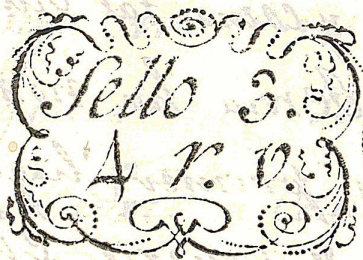 Sello 3.
4 r. v.